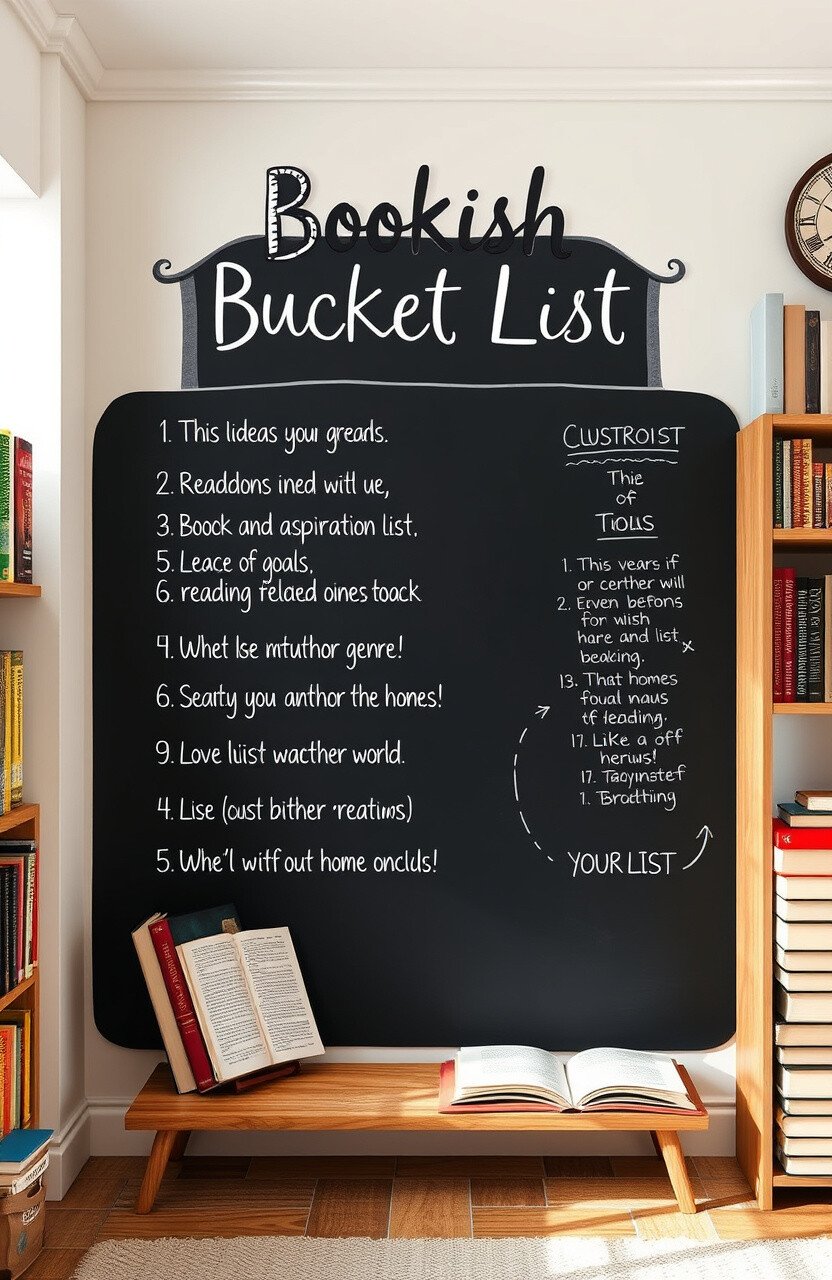 Bookish
Bucket List
1. This lideas your greads.
2. Readdons ined witll ue,
3.Boock and aspiration list,
5. Leace of goals,
6. reading felaed oines toack
4. Whet lse mtuthor genre!
6. Searty you anthor the hones!
9. Love luist wacther world.
4. Lise (oust bither reatims)
5. Whe'l witf out home onclds!
CLUSTROIST
Thie
of
TIOUS
1. This vears if
or certher will
2. Erven befons
for wish
hare and list x
bealcing.
13. That homes
foual naus
tf leading.
17. Like a off
herius!
17. Taoyinstef
1. Tsrotthing
YOUR LIST